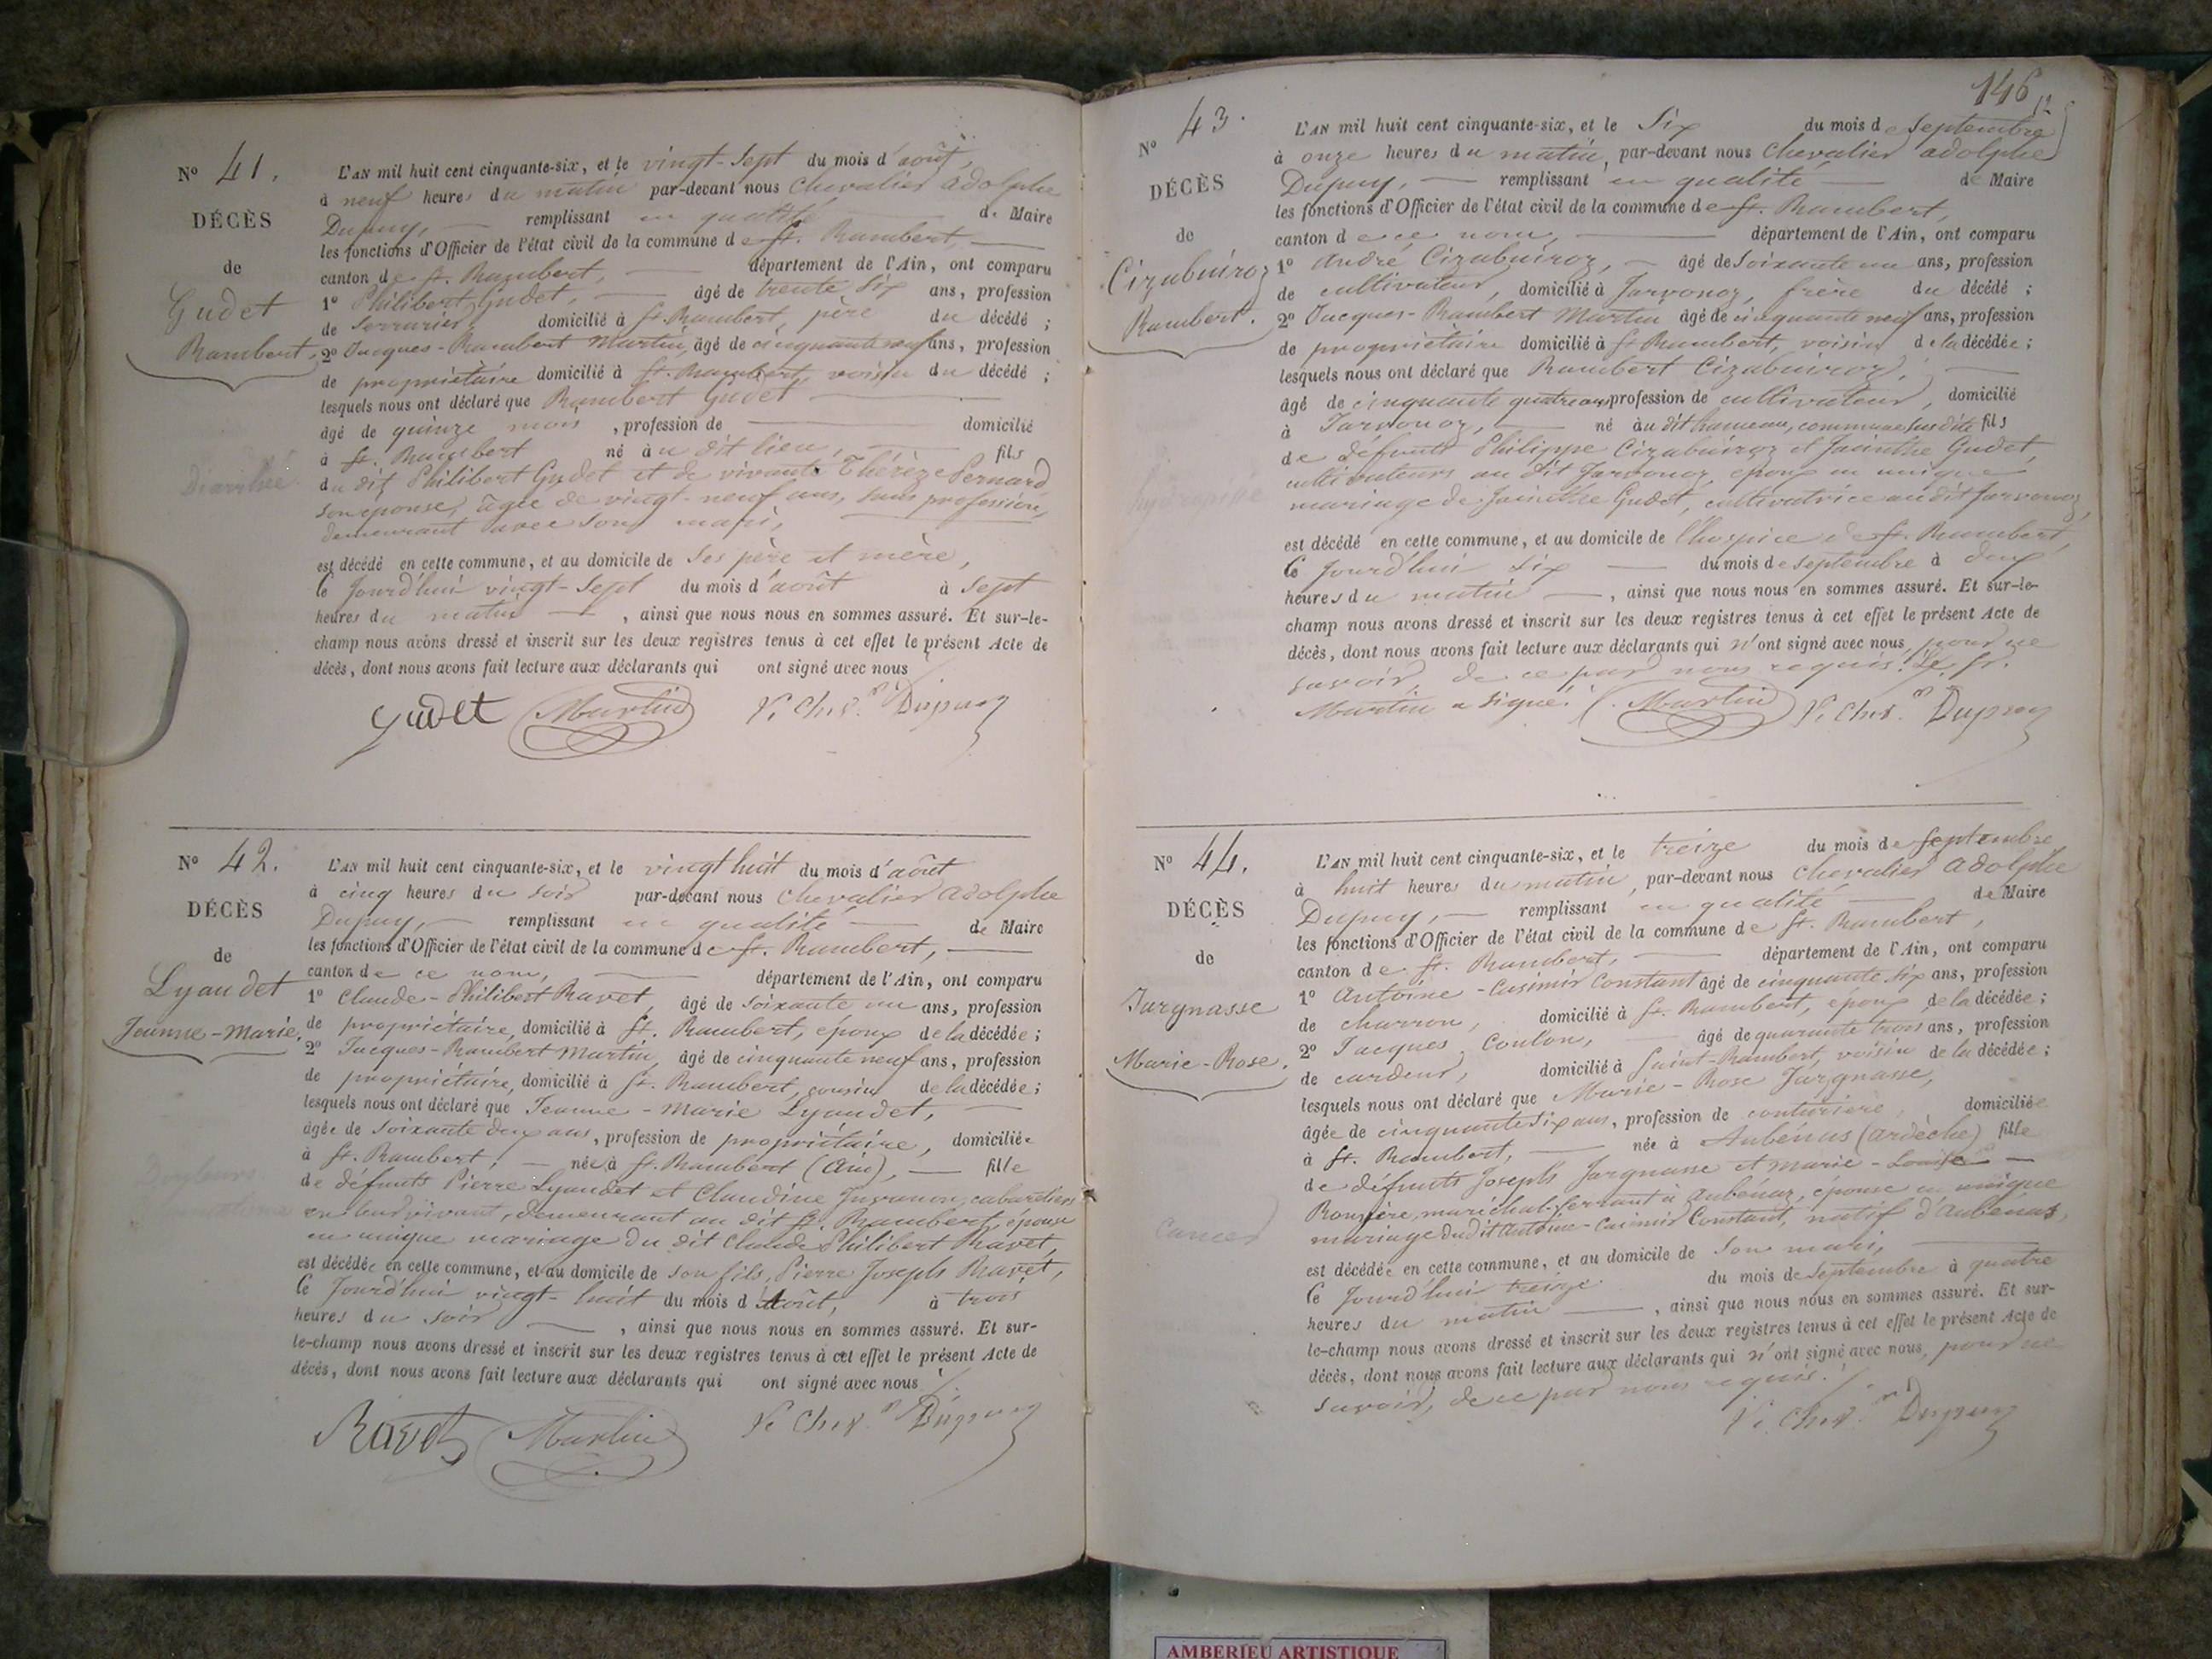 N° 41.
DÉCÈS
de
Gudet
Rambert.
Diarrhée
L'AN mil huit cent cinquante-six, et le vingt-sept du mois d'août,
à neuf heures du matin par-devant nous Chevalier Adolphe
Dupuy, — remplissant en qualité de Maire
les fonctions d'Officier de l'état civil de la commune de St. Rambert, —
canton de St. Rambert, — département de l'Ain, ont comparu
1° Philibert Gudet, — âgé de trente six ans, profession
de serrurier, domicilié à St. Rambert, père du décédé ;
2° Jacques-Rambert Martin, âgé de cinquante neuf ans, profession
de propriétaire domicilié à St. Rambert, voisin du décédé ;
lesquels nous ont déclaré que Rambert Gudet —
âgé de quinze mois, profession de — domicilié
à St. Rambert né au dit lieu, — fils
du dit Philibert Gudet et de vivante Thérèze Pernard
son épouse, âgée de vingt-neuf ans, sans profession,
demeurant avec son mari,
est décédé en cette commune, et au domicile de ses père et mère,
le jourd'hui vingt-sept du mois d'août à sept
heures du matin —, ainsi que nous nous en sommes assuré. Et sur-le-
champ nous avons dressé et inscrit sur les deux registres tenus à cet effet le présent Acte de
décès, dont nous avons fait lecture aux déclarants qui ont signé avec nous
Gudet Martin Chev. Dupuy
N° 42.
DÉCÈS
de
Lyaudet
Jeanne-Marie.
Douleurs
L'AN mil huit cent cinquante-six, et le vingt huit du mois d'août
à cinq heures du soir par-devant nous Chevalier Adolphe
Dupuy, — remplissant en qualité — de Maire
les fonctions d'Officier de l'état civil de la commune de St. Rambert, —
canton de ce nom, — département de l'Ain, ont comparu
1° Claude-Philibert Ravet, âgé de soixante un ans, profession
de propriétaire, domicilié à St. Rambert, époux de la décédée ;
2° Jacques-Rambert Martin, âgé de cinquante neuf ans, profession
de propriétaire, domicilié à St. Rambert, cousin de la décédée ;
lesquels nous ont déclaré que Jeanne-Marie Lyaudet, —
âgée de soixante deux ans, profession de propriétaire, domiciliée
à St. Rambert, — née à St. Rambert (Ain), — fille
de défunts Pierre Lyaudet et Claudine Juvanon, cabaretiers
en leur vivant, demeurant au dit St. Rambert, épouse
en unique mariage du dit Claude Philibert Ravet,
est décédée en cette commune, et au domicile de son fils, Pierre Joseph Ravet,
le jourd'hui vingt-huit du mois d'Août, à trois
heures du soir —, ainsi que nous nous en sommes assuré. Et sur-
le-champ nous avons dressé et inscrit sur les deux registres tenus à cet effet le présent Acte de
décès, dont nous avons fait lecture aux déclarants qui ont signé avec nous
Ravet Martin Chev. Dupuy
146
12
N° 43.
DÉCÈS
de
Cizabuiroz
Rambert.
hydropisie
L'AN mil huit cent cinquante-six, et le six du mois de Septembre
à onze heures du matin, par-devant nous Chevalier Adolphe
Dupuy, — remplissant en qualité — de Maire
les fonctions d'Officier de l'état civil de la commune de St. Rambert,
canton de ce nom, — département de l'Ain, ont comparu
1° André Cizabuiroz, — âgé de soixante un ans, profession
de cultivateur, domicilié à Javornoz, frère du décédé ;
2° Jacques-Rambert Martin âgé de cinquante neuf ans, profession
de propriétaire domicilié à St. Rambert, voisin de la décédée ;
lesquels nous ont déclaré que Rambert Cizabuiroz, —
âgé de cinquante quatre ans, profession de cultivateur, domicilié
à Javornoz, — né au dit hameau, commune susdite fils
de défunts Philippe Cizabuiroz et Jacinthe Gudet,
cultivateurs au dit Javornoz, époux en unique
mariage de Jacinthe Gudet, cultivatrice au dit Javornoz,
est décédé en cette commune, et au domicile de l'hospice de St. Rambert,
le jourd'hui six — du mois de septembre à deux
heures du matin —, ainsi que nous nous en sommes assuré. Et sur-le-
champ nous avons dressé et inscrit sur les deux registres tenus à cet effet le présent Acte de
décès, dont nous avons fait lecture aux déclarants qui n'ont signé avec nous, pour ne
savoir, de ce par nous requis. Le Sr.
Martin a signé. Martin Chev. Dupuy
N° 44.
DÉCÈS
de
Jargnasse
Marie-Rose.
Cancer
L'AN mil huit cent cinquante-six, et le treize du mois de Septembre
à huit heures du matin, par-devant nous Chevalier Adolphe
Dupuy, — remplissant en qualité — de Maire
les fonctions d'Officier de l'état civil de la commune de St. Rambert,
canton de St. Rambert, — département de l'Ain, ont comparu
1° Antoine-Casimir Constant âgé de cinquante six ans, profession
de charron, domicilié à St. Rambert, époux de la décédée ;
2° Jacques Coulon, âgé de quarante trois ans, profession
de cardeur, domicilié à Saint-Rambert, voisin de la décédée ;
lesquels nous ont déclaré que Marie-Rose Jargnasse,
âgée de cinquante six ans, profession de couturière, domiciliée
à St. Rambert, — née à Aubénas (Ardèche) fille
de défunts Joseph Jargnasse et Marie-Louise —
Rouzière, maréchal-ferrant à Aubénas, épouse en unique
mariage du dit Antoine-Casimir Constant, natif d'Aubénas,
est décédée en cette commune, et au domicile de son mari, —
le jourd'hui treize du mois de Septembre à quatre
heures du matin —, ainsi que nous nous en sommes assuré. Et sur-
le-champ nous avons dressé et inscrit sur les deux registres tenus à cet effet le présent Acte de
décès, dont nous avons fait lecture aux déclarants qui n'ont signé avec nous, pour ne
savoir, de ce par nous requis.
Chev. Dupuy
AMBERIEU ARTISTIQUE